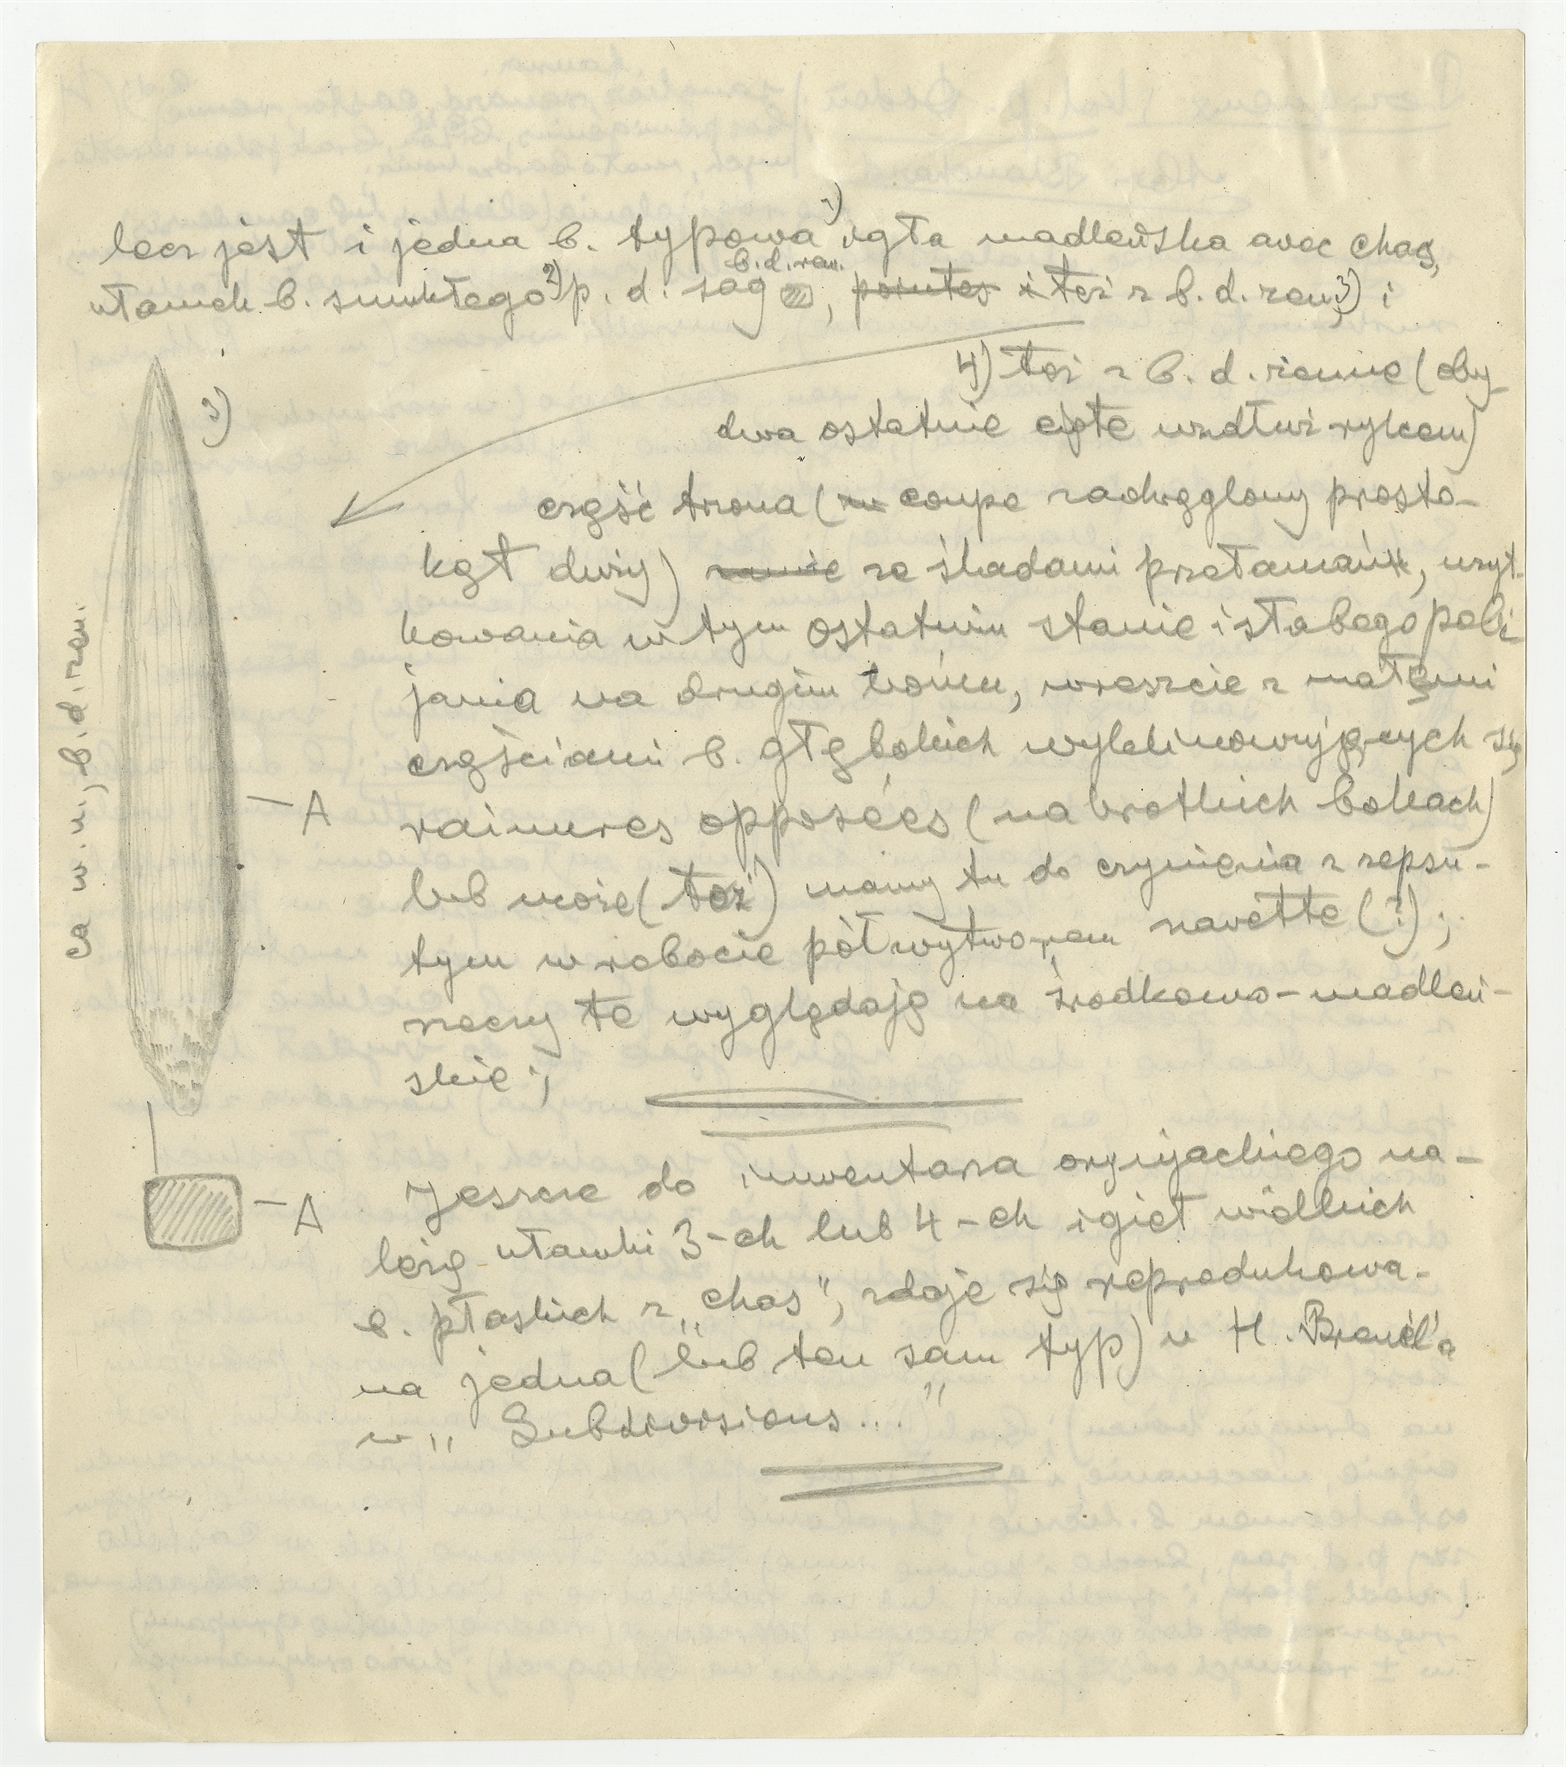 lecz jest i jedna b. typowa 1) igła madleńska avec chas,
ułamek b. smukłego 2) p. d. sag b. d. ren., pointes i też z b. d. ren 3) i
4) też z b. d. renne (oby-
dwa ostatnie cięte wzdłuż rylcem)
3)
część trzona (coupe zaokrąglony prosto-
kąt duży) ze śladami przełamań, użyt-
kowania w tym ostatnim stanie i słabego pobi-
jania na drugim końcu, wreszcie z małemi
częściami b. głębokich wyklinowujących się
rainures opposées (na krótkich bokach)
lub może (też) mamy tu do czynienia z zepsu-
tym w robocie półwytworem navette (?);
rzeczy te wyglądają na środkowo-madleń-
skie;
ca w. n., b. d. ren.
A
A
Jeszcze do inwentarza oryniackiego na-
leżą ułamki 3-ch lub 4-ch igieł widlkich
b. płaskich z „chas", zdaje się reprodukowa-
na jedna (lub ten sam typ) u H. Breuil'a
w „Subdivisions..."